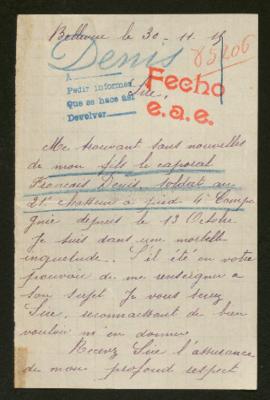 Bellevue le 30-11-15
Denis
85206
A
Pedir informes
Que se hace así
Devolver
Fecho
e.a.e.
Sire,
Me trouvant sans nouvelles
de mon fils le caporal
François Denis, soldat au
21e chasseur à pied 4e Compa
gnie depuis le 13 Octobre
Je suis dans une mortelle
inquietude. S'il été en votre
pouvoir de me renseigner a
son sujet Je vous serez
Sire, reconnaissant de bien
vouloir m'en donner
Recevez Sire l'assurance
de mon profond respect